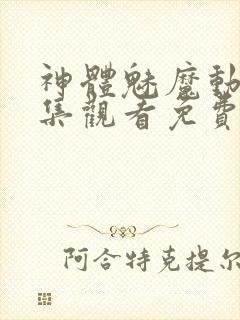 神體魅魔動
集觀看免費
阿合特克提尔